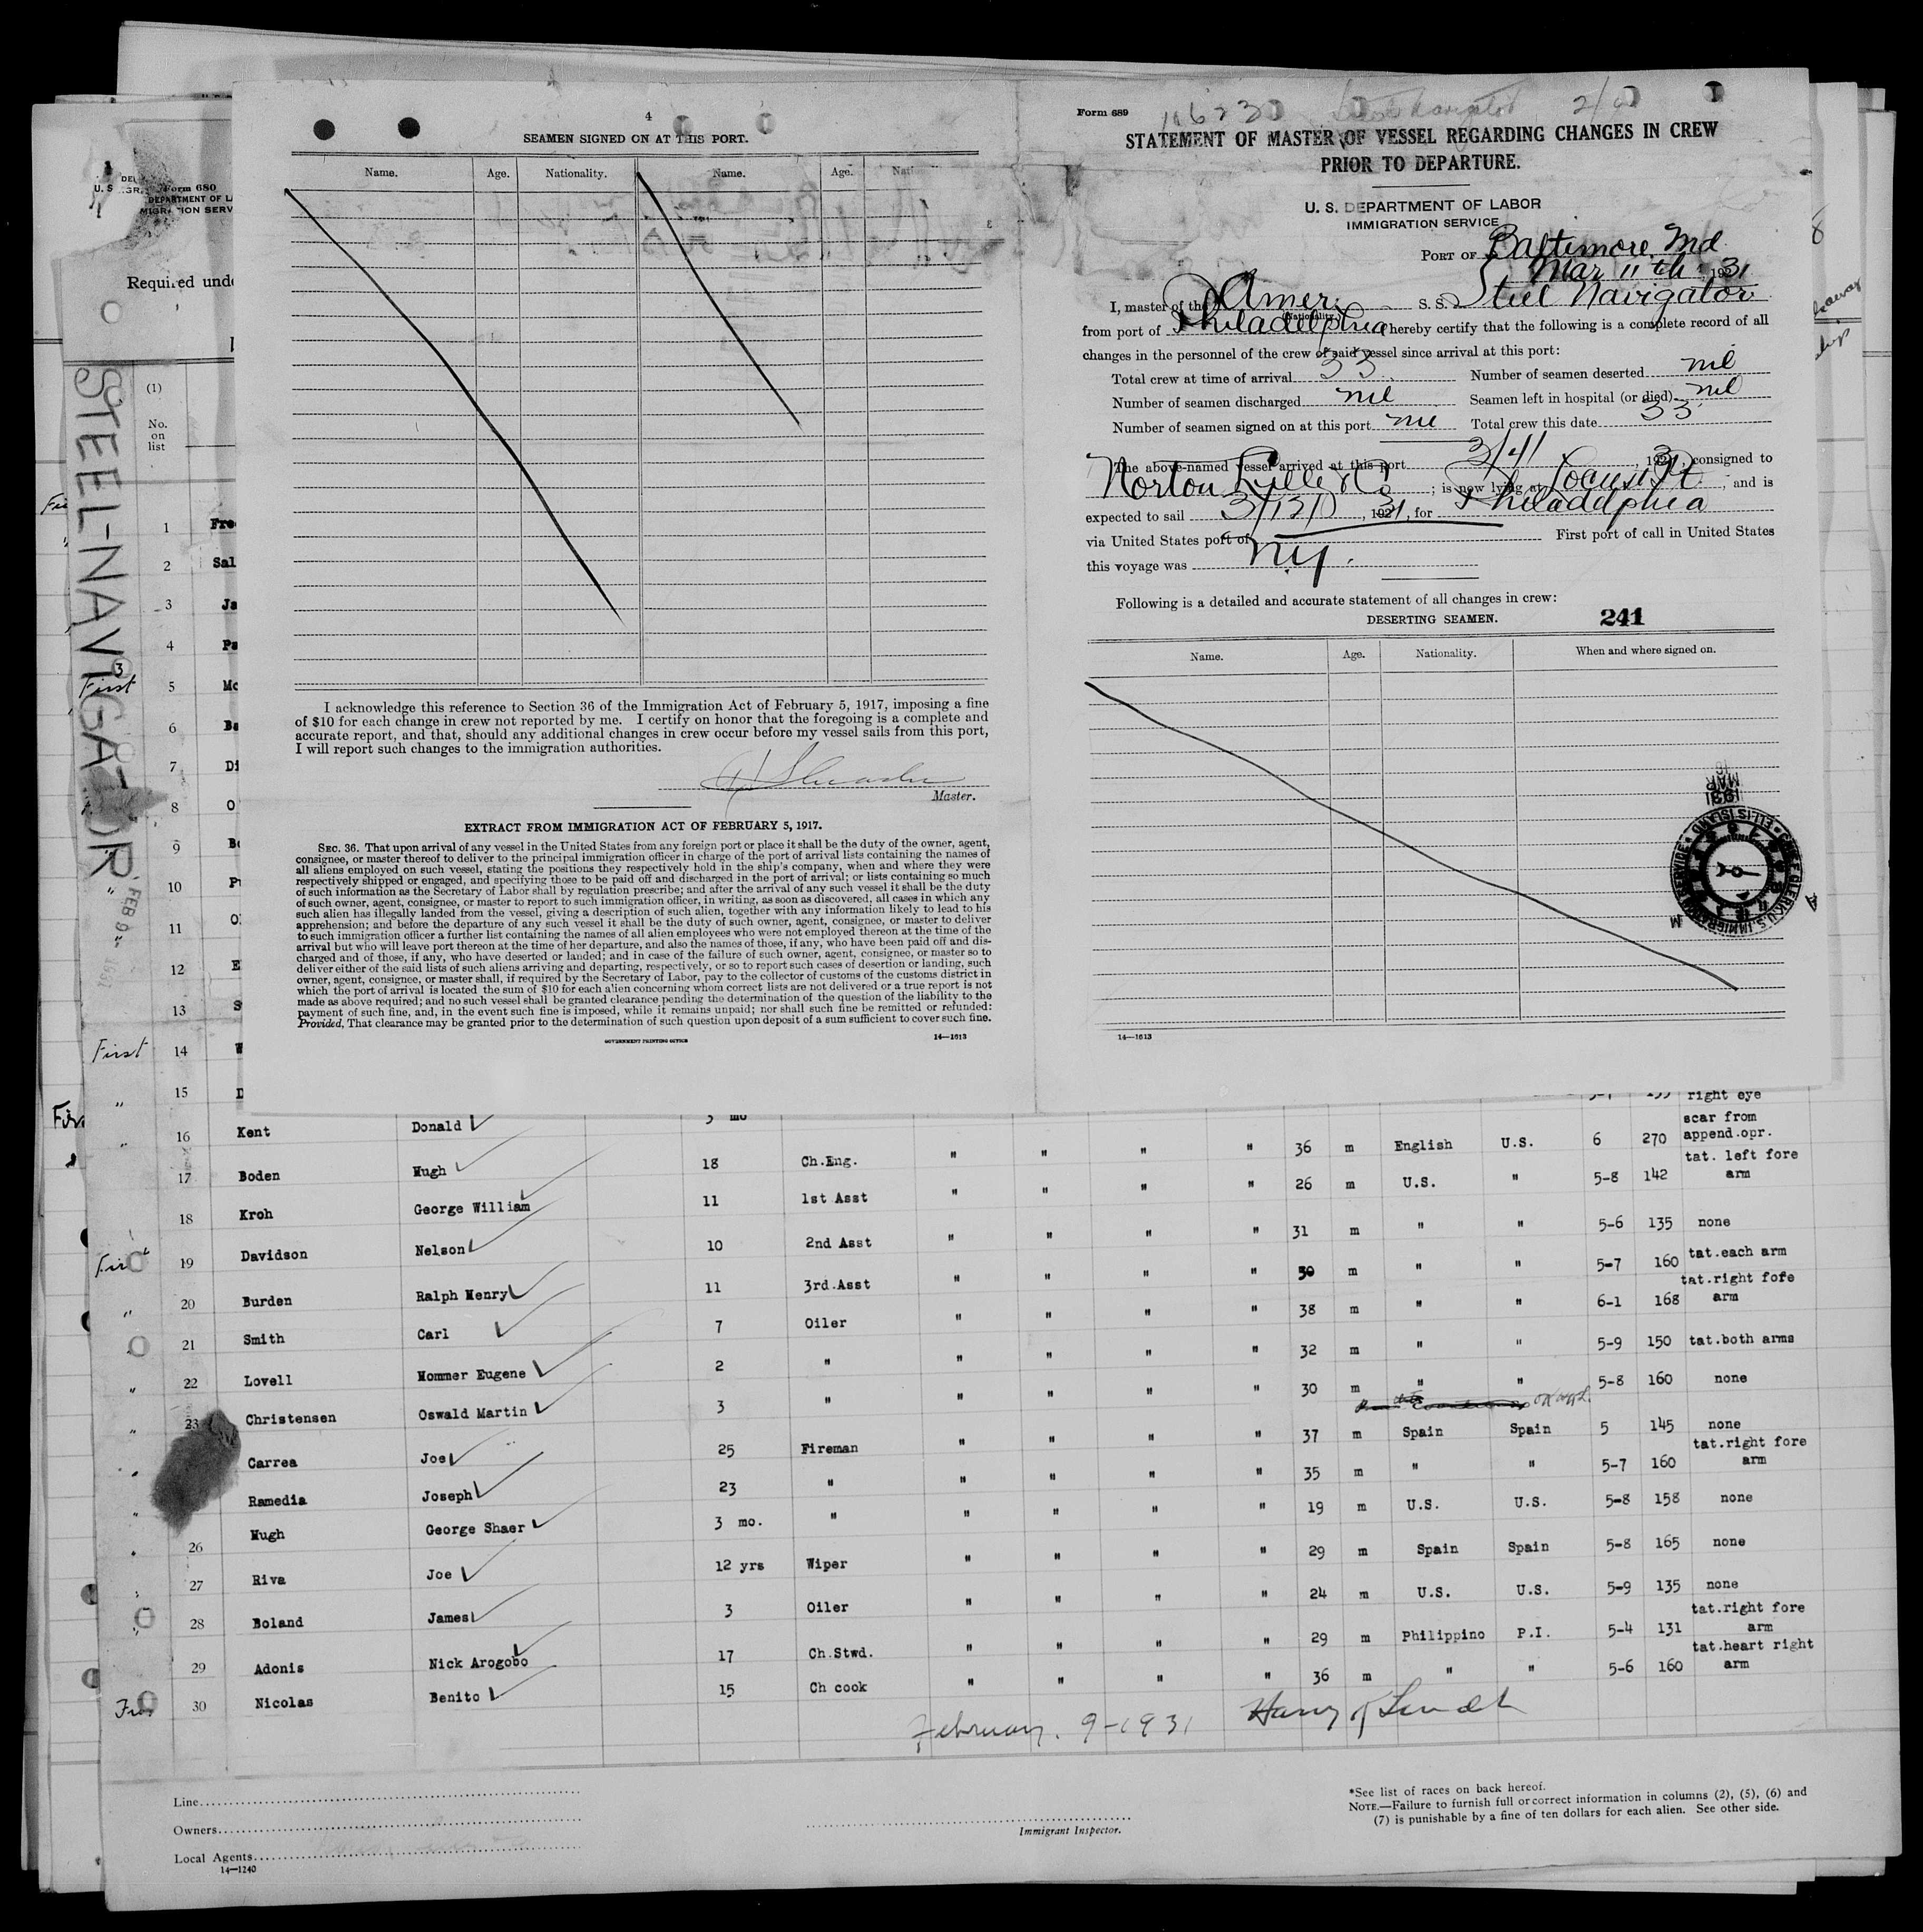 4
SEAMEN SIGNED ON AT THIS PORT.
Name. Age. Nationality. Name. Age. Nati
I acknowledge this reference to Section 36 of the Immigration Act of February 5, 1917, imposing a fine
of $10 for each change in crew not reported by me. I certify on honor that the foregoing is a complete and
accurate report, and that, should any additional changes in crew occur before my vessel sails from this port,
I will report such changes to the immigration authorities.
Master.
EXTRACT FROM IMMIGRATION ACT OF FEBRUARY 5, 1917.
SEC. 36. That upon arrival of any vessel in the United States from any foreign port or place it shall be the duty of the owner, agent,
consignee, or master thereof to deliver to the principal immigration officer in charge of the port of arrival lists containing the names of
all aliens employed on such vessel, stating the positions they respectively hold in the ship's company, when and where they were
respectively shipped or engaged, and specifying those to be paid off and discharged in the port of arrival; or lists containing so much
of such information as the Secretary of Labor shall by regulation prescribe; and after the arrival of any such vessel it shall be the duty
of such owner, agent, consignee, or master to report to such immigration officer, in writing, as soon as discovered, all cases in which any
such alien has illegally landed from the vessel, giving a description of such alien, together with any information likely to lead to his
apprehension; and before the departure of any such vessel it shall be the duty of such owner, agent, consignee, or master to deliver
to such immigration officer a further list containing the names of all alien employees who were not employed thereon at the time of the
arrival but who will leave port thereon at the time of her departure, and also the names of those, if any, who have been paid off and dis-
charged and of those, if any, who have deserted or landed; and in case of the failure of such owner, agent, consignee, or master so to
deliver either of the said lists of such aliens arriving and departing, respectively, or so to report such cases of desertion or landing, such
owner, agent, consignee, or master shall, if required by the Secretary of Labor, pay to the collector of customs of the customs district in
which the port of arrival is located the sum of $10 for each alien concerning whom correct lists are not delivered or a true report is not
made as above required; and no such vessel shall be granted clearance pending the determination of the question of the liability to the
payment of such fine, and, in the event such fine is imposed, while it remains unpaid; nor shall such fine be remitted or refunded:
Provided, That clearance may be granted prior to the determination of such question upon deposit of a sum sufficient to cover such fine.
GOVERNMENT PRINTING OFFICE 14—1613
Form 689
STATEMENT OF MASTER OF VESSEL REGARDING CHANGES IN CREW
PRIOR TO DEPARTURE.
U. S. DEPARTMENT OF LABOR
IMMIGRATION SERVICE
PORT OF Baltimore, Md
Mar 11th, 1931
I, master of the Amer. S. S. Steel Navigator
(Nationality.)
from port of Philadelphia hereby certify that the following is a complete record of all
changes in the personnel of the crew of said vessel since arrival at this port:
Total crew at time of arrival 33 Number of seamen deserted nil
Number of seamen discharged nil Seamen left in hospital (or died) nil
Number of seamen signed on at this port nil Total crew this date 33
The above-named vessel arrived at this port , 192 , consigned to
Norton Lilly & Co ; is now lying at Locust Pt , and is
expected to sail , 192 , for Philadelphia
via United States port of First port of call in United States
this voyage was N.Y.
Following is a detailed and accurate statement of all changes in crew:
DESERTING SEAMEN. 241
Name. Age. Nationality. When and where signed on.
14—1613
1931
MAR
16
ELLIS ISLAND
U.S. IMMIGRATION SERVICE
Form 680
DEPARTMENT OF LA
IMMIGRATION SERV
Required unde
STEEL-NAVIGATOR
FEB 9 1931
(1)
No.
on
list
1 Fre
2 Sal
3 Ja
4 Pa
First 5 Mc
6 Ba
7 Di
8 O
9 Bo
10 Pi
11 Ol
12 E
13 S
First 14 W
15 D right eye
16 Kent Donald 3 mo scar from
append.opr.
36 m English U.S. 6 270
17 Boden Hugh 18 Ch.Eng. " " " " 26 m U.S. " 5-8 142 tat. left fore
arm
18 Kroh George William 11 1st Asst " " " " 31 m " " 5-6 135 none
19 Davidson Nelson 10 2nd Asst " " " " 30 m " " 5-7 160 tat.each arm
20 Burden Ralph Henry 11 3rd.Asst " " " " 38 m " " 6-1 168 tat.right fofe
arm
21 Smith Carl 7 Oiler " " " " 32 m " " 5-9 150 tat.both arms
22 Lovell Hommer Eugene 2 " " " " " 30 m " " 5-8 160 none
23 Christensen Oswald Martin 3 " " " " "
Carrea Joe 25 Fireman " " " " 37 m Spain Spain 5 145 none
Ramedia Joseph 23 " " " " " 35 m " " 5-7 160 tat.right fore
arm
26 Hugh George Shaer 3 mo. " " " " " 19 m U.S. U.S. 5-8 158 none
27 Riva Joe 12 yrs Wiper " " " " 29 m Spain Spain 5-8 165 none
28 Boland James 3 Oiler " " " " 24 m U.S. U.S. 5-9 135 none
29 Adonis Nick Arogobo 17 Ch.Stwd. " " " " 29 m Philippino P.I. 5-4 131 tat.right fore
arm
30 Nicolas Benito 15 Ch cook " " " " 36 m " " 5-6 160 tat.heart right
arm
February. 9-1931
Line
Owners
Local Agents
14—1240
Immigrant Inspector.
*See list of races on back hereof.
NOTE.—Failure to furnish full or correct information in columns (2), (5), (6) and
(7) is punishable by a fine of ten dollars for each alien. See other side.